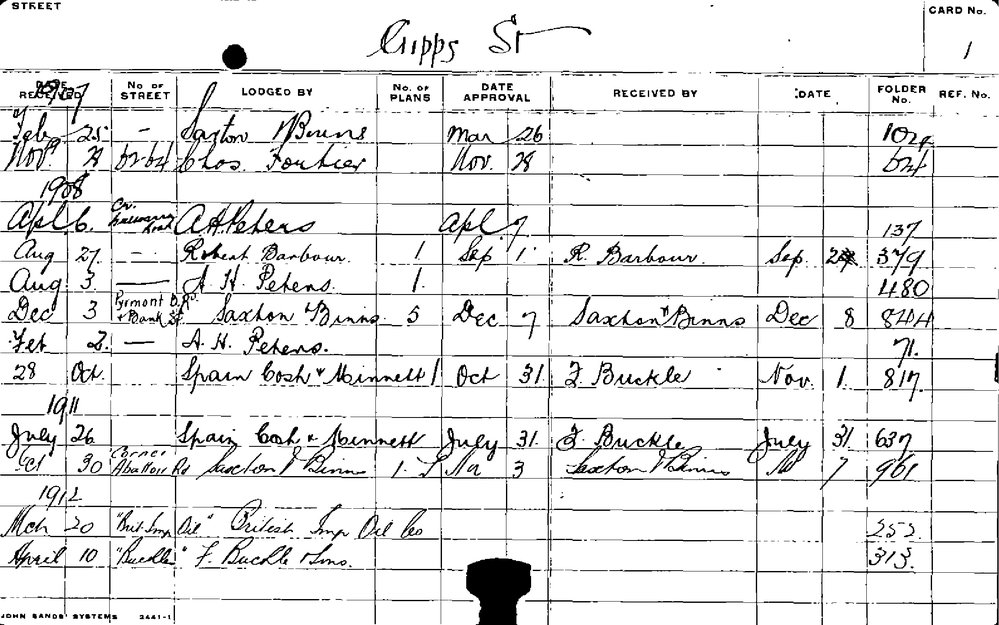 STREET
CARD No.
Gipps St
1
DATE RECEIVED No OF STREET LODGED BY No. OF PLANS DATE APPROVAL RECEIVED BY DATE FOLDER No. REF. No.
Feb 25 - Saxton & Binns Mar 26 102
Nov. 28 62-64 Chas. Fortier Nov. 28
1908
Apl 6. Cr. Road A H Peters Apl 7 137
Aug 27. - Robert Barbour. 1. Sep 1 R. Barbour. Sep. 379
Aug 3 — A. H. Peters. 1. 480
Dec 3 Pyrmont B. Rd & Bank St Saxton & Binns 5 Dec 7 Saxton & Binns Dec 8 844
Feb 2. — A. H. Peters. 71.
28 Oct. Spain Cosh & Minnett 1 Oct 31. F. Buckle Nov. 1. 817.
1911
July 26 Spain Cosh & Minnett July 31. F. Buckle July 31. 637
Oct 30 Corner Abattoir Rd Saxton & Binns 1. 3 Saxton & Binns 7 961
1912
Mch 20 "Brit. Imp Oil" British Imp Oil Co 253
April 10 "Buckle" F. Buckle & Sons. 313.
JOHN SANDS' SYSTEMS 2441-1